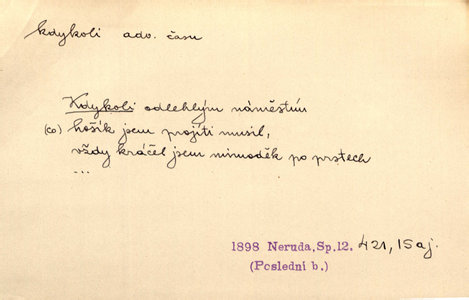 kdykoli adv. času
Kdykoli odlehlým náměstím
(co) hošík jsem projíti musil,
vždy kráčel jsem mimoděk po prstech
...
1898 Neruda, Sp.12. 421, 15 aj.
(Poslední b.)